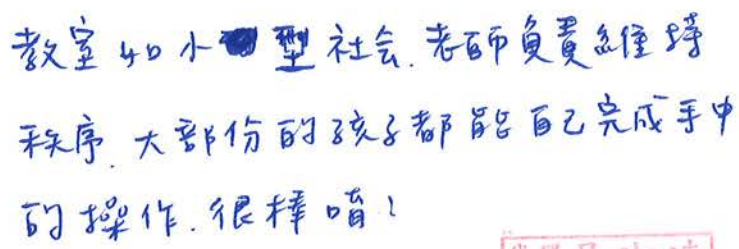 教室如小型社会.老師負責維持
秩序.大部份的孩子都能自己完成手中
的操作.很棒唷!